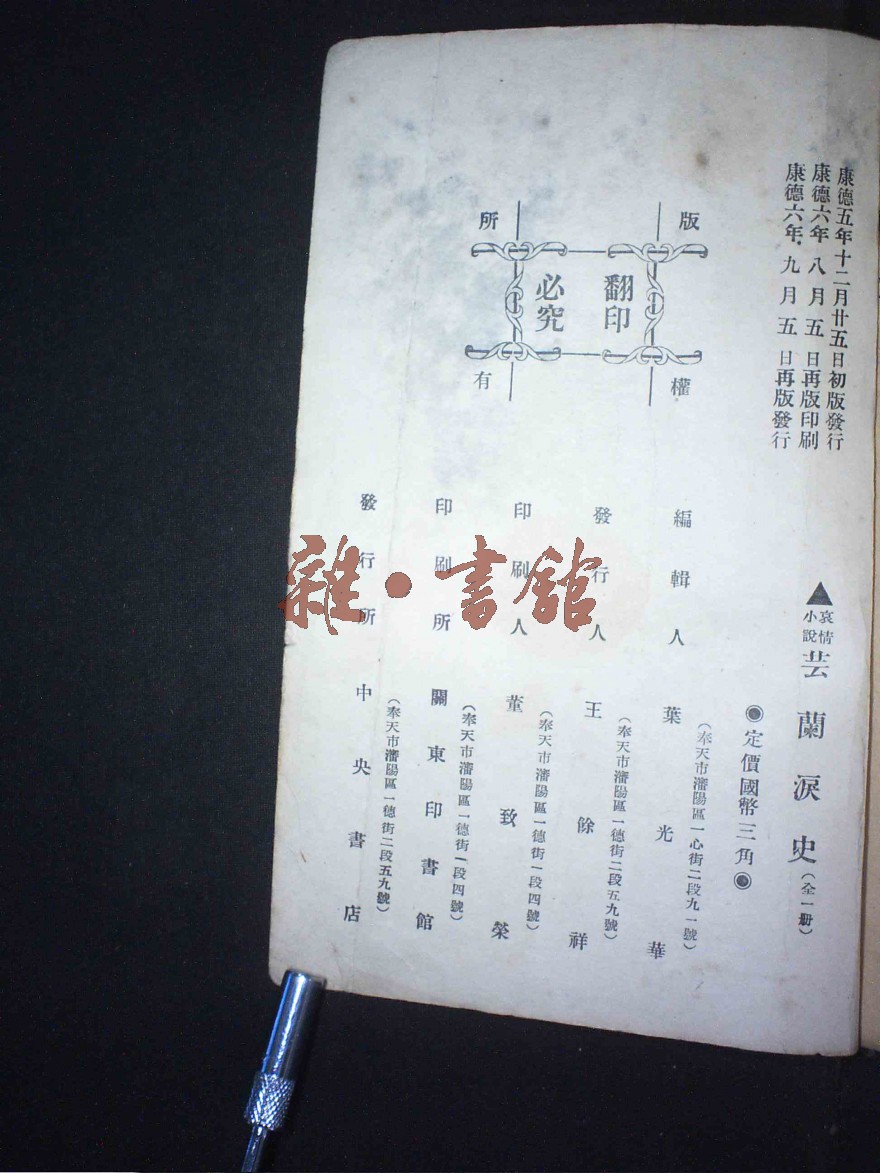 康德五年十二月廿五日初版發行
康德六年八月五日再版印刷
康德六年九月五日再版發行
▲哀情小說 芸蘭淚史（全一册）
◉定價國幣三角◉
版權所有
翻印必究
（奉天市瀋陽區一心街二段九一號）
編輯人 葉光華
（奉天市瀋陽區一德街二段五九號）
發行人 王餘祥
（奉天市瀋陽區一德街一段四號）
印刷人 董致榮
（奉天市瀋陽區一德街一段四號）
印刷所 關東印書館
（奉天市瀋陽區一德街二段五九號）
發行所 中央書店
雜·書館